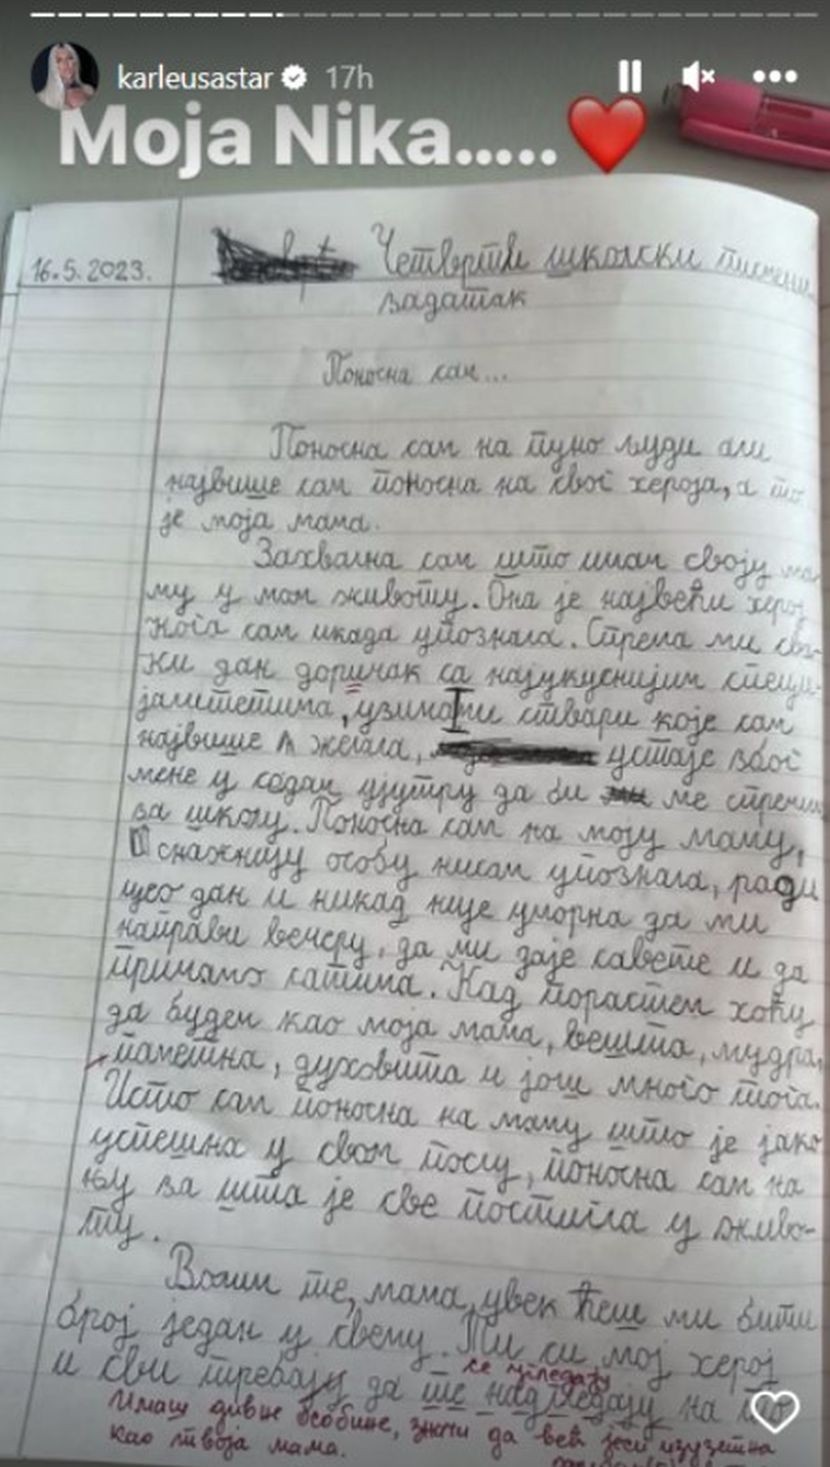 karleusastar 17h
Moja Nika.....
16.5.2023.
Четврти школски писмени
задатак
Поносна сам...
Поносна сам на пуно људи али
највише сам поносна на свог хероја, а то
је моја мама.
Захвална сам што имам своју ма
му у мом животу. Она је највећи херој
кога сам икада упознала. Спрема ми сва-
ки дан доручак са најукуснијим специ-
јалитетима, узима ми ствари које сам
највише желела, устаје због
мене у седам ујутру да би ме спремила
за школу. Поносна сам на моју маму,
снажнију особу нисам упознала, ради
цео дан и никад није уморна да ми
направи вечеру, да ми даје савете и да
причамо сатима. Кад порастем хоћу
да будем као моја мама, вешта, мудра,
паметна, духовита и још много тога.
Исто сам поносна на маму што је јако
успешна у свом послу, поносна сам на
њу за шта је све постигла у живо-
ту.
Волим те, мама, увек ћеш ми бити
број један у свему. Ти си мој херој
се угледају
и сви требају да те надгледају на то
Имаш дивне особине, значи да већ јеси изузетна
као твоја мама.